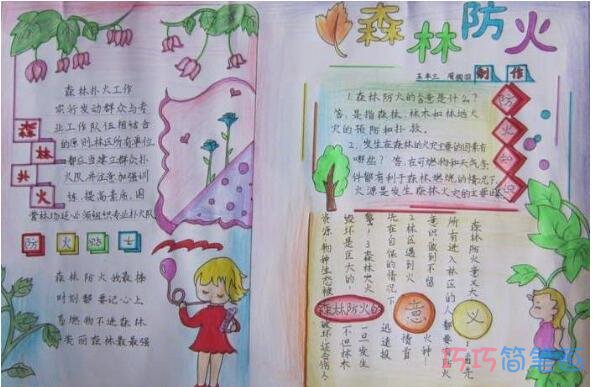 森林扑火工作
实行发动群众与专
业工作队伍相结合
的原则,林区所有单位
都应当建立群众扑
火队并注意加强训
练,提高素质,国
营林场还必须组织专业扑火队
森林扑火
防火路上
森林防火我最棒
时刻都要记心上
易燃物不进森林
美丽森林最最强
森林防火
五年三
制作
1.森林防火的含意是什么?
答:是指森林、林木和林地火
灾的预防和扑救。
2.发生在森林的火灾主要的因素有
哪些? 答:在可燃物和天气条
件都有利于森林燃烧的情况下,
火源是发生森林火灾的主要
防火知识
森林防火意义大
所有进入林区的人都要
意识做到不留火种
2.林区遇到火情首
先在自保的情况下迅速报
警!3.森林火灾一旦发生
毁坏是巨大的不但林木
资源物种生态被破坏还会伤人
森林防火的意义
巧巧简笔画